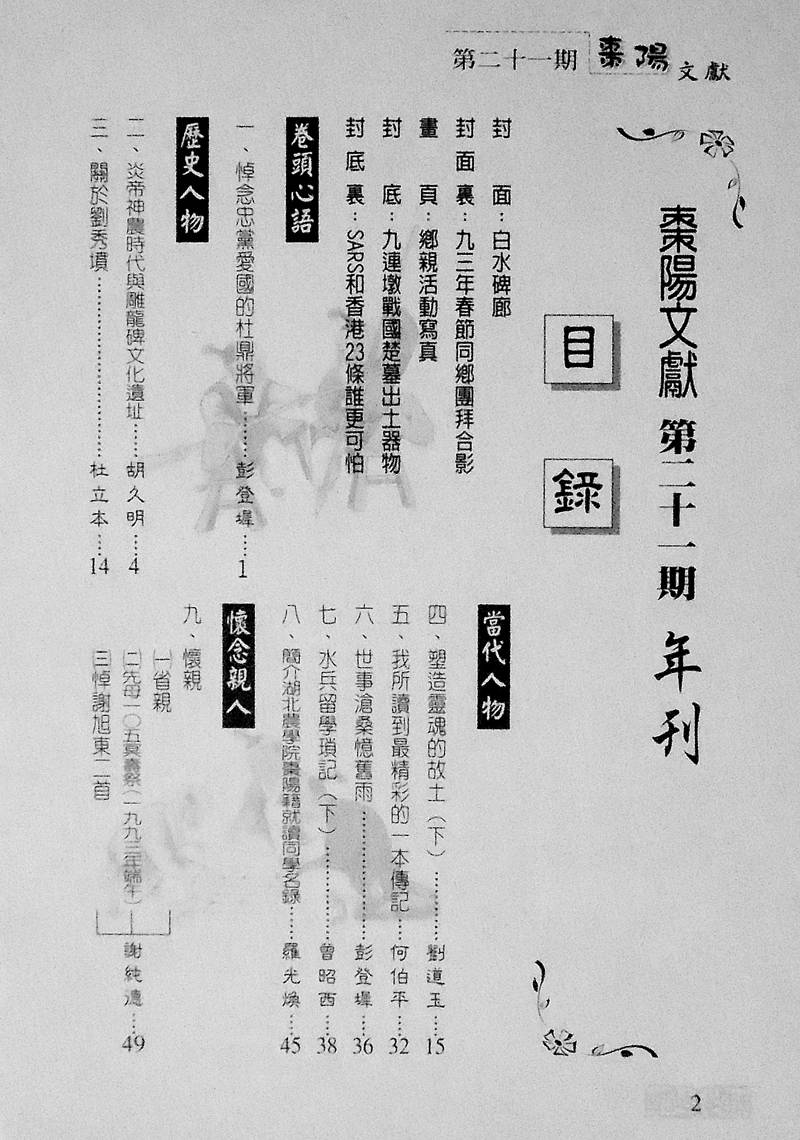 第二十一期 棗陽文獻
棗陽文獻 第二十一期 年刊
目錄
封面：白水碑廊
封面裏：九三年春節同鄉團拜合影
畫頁：鄉親活動寫真
封底：九連墩戰國楚墓出土器物
封底裏：SARS和香港23條誰更可怕
卷頭心語
一、悼念忠黨愛國的杜鼎將軍………彭登墀…1
歷史人物
二、炎帝神農時代與雕龍碑文化遺址……胡久明…4
三、關於劉秀墳…………………………杜立本…14
當代人物
四、塑造靈魂的故土（下）…………劉道玉…15
五、我所讀到最精彩的一本傳記……何伯平…32
六、世事滄桑憶舊雨…………………彭登墀…36
七、水兵留學瑣記（下）……………曾昭西…38
八、簡介湖北農學院棗陽籍就讀同學名錄……羅光煥…45
懷念親人
九、懷親
㈠省親
㈡先母一〇五冥壽祭（一九九三年端午）
㈢悼謝旭東二首
謝純德…49
2